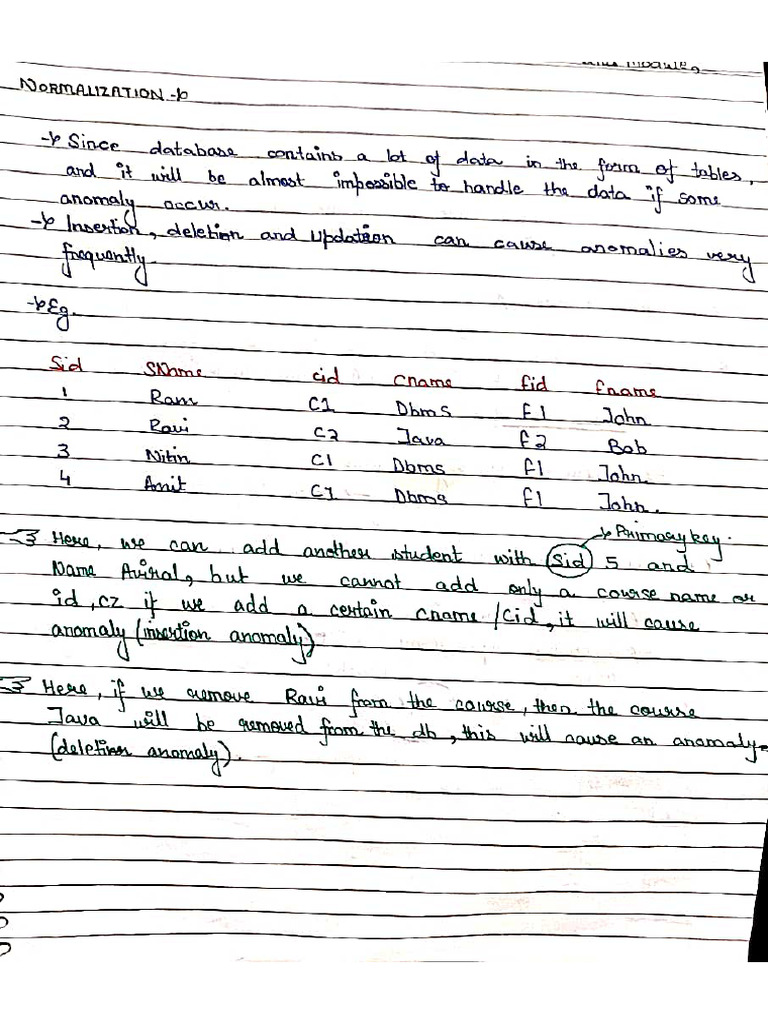 NORMALIZATION →
→ Since database contains a lot of data in the form of tables,
and it will be almost impossible to handle the data if some
anomaly occur.
→ Insertion, deletion and updation can cause anomalies very
frequently.
→ Eg.
Sid SName cid cname fid fname
1 Ram C1 Dbms F1 John
2 Ravi C2 Java F2 Bob
3 Nitin C1 Dbms F1 John
4 Amit C1 Dbms F1 John.
→ Primary key.
Here, we can add another student with Sid 5 and
Name Aviral, but we cannot add only a course name or
id, cz if we add a certain cname /Cid, it will cause
anomaly (insertion anomaly)
Here, if we remove Ravi from the course, then the course
Java will be removed from the db, this will cause an anomaly
(deletion anomaly).